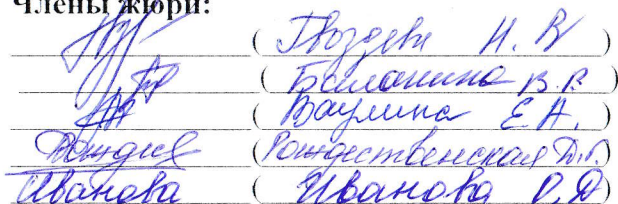 Члены жюри:
( Гвоздева Н. В )
( Баланина В. В )
( Ваулина Е.А. )
(Рождественская Д.В.)
Иванова ( Иванова О.Д)